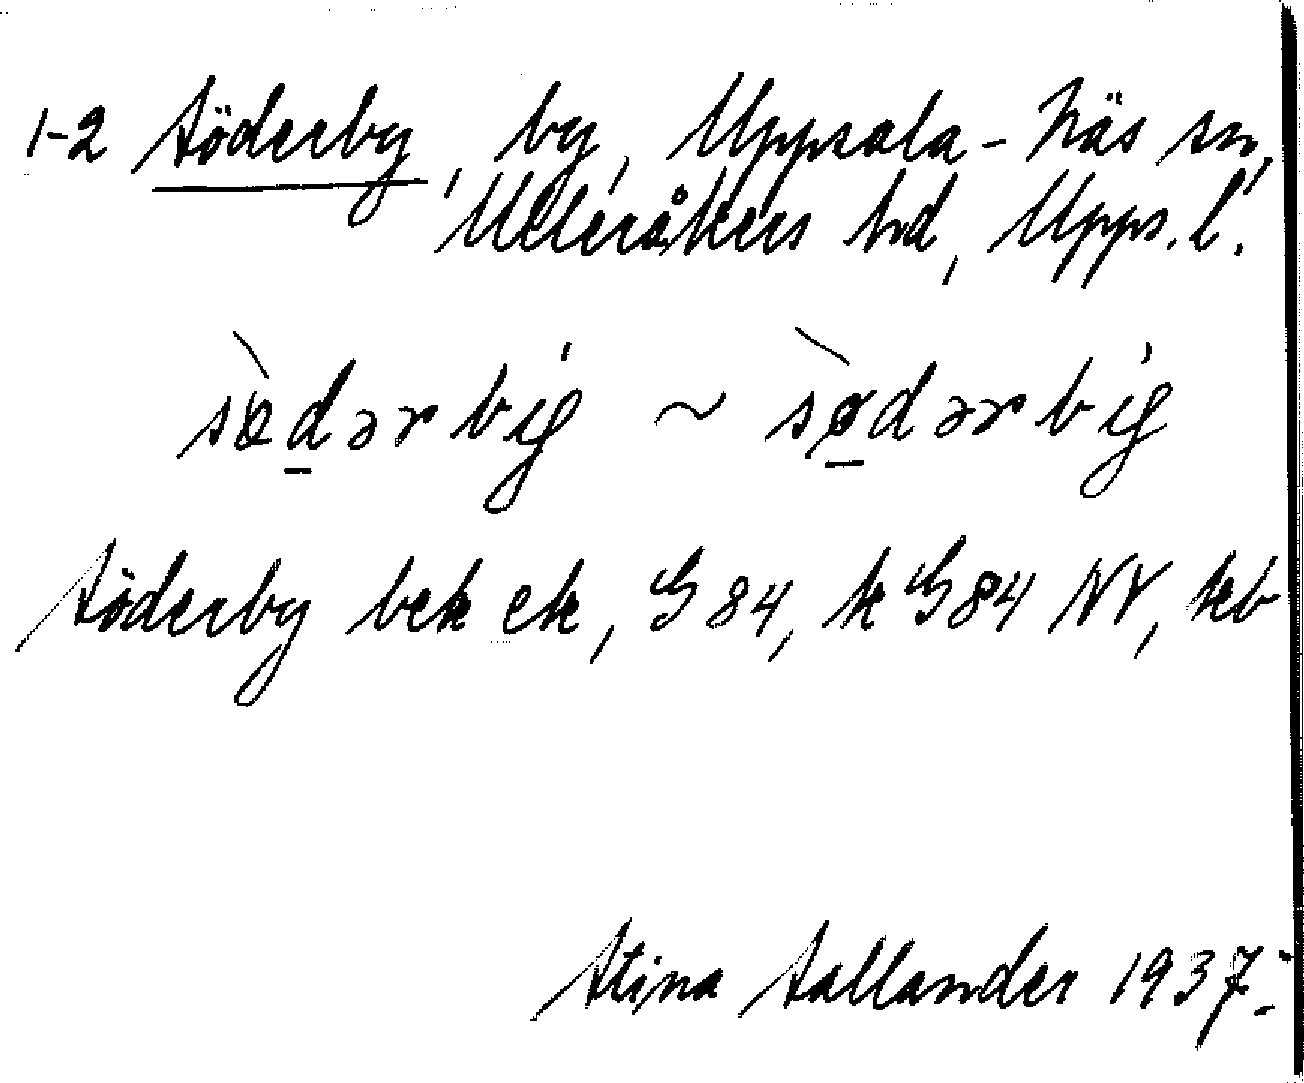 1-2 Söderby, by, Uppsala-Näs sn,
Ulleråkers hd, Upps. l.
sø̀dərby ~ sø̀dərby
Söderby bek ek, G 84, k G84 NV, kb
Stina Sallander 1937.